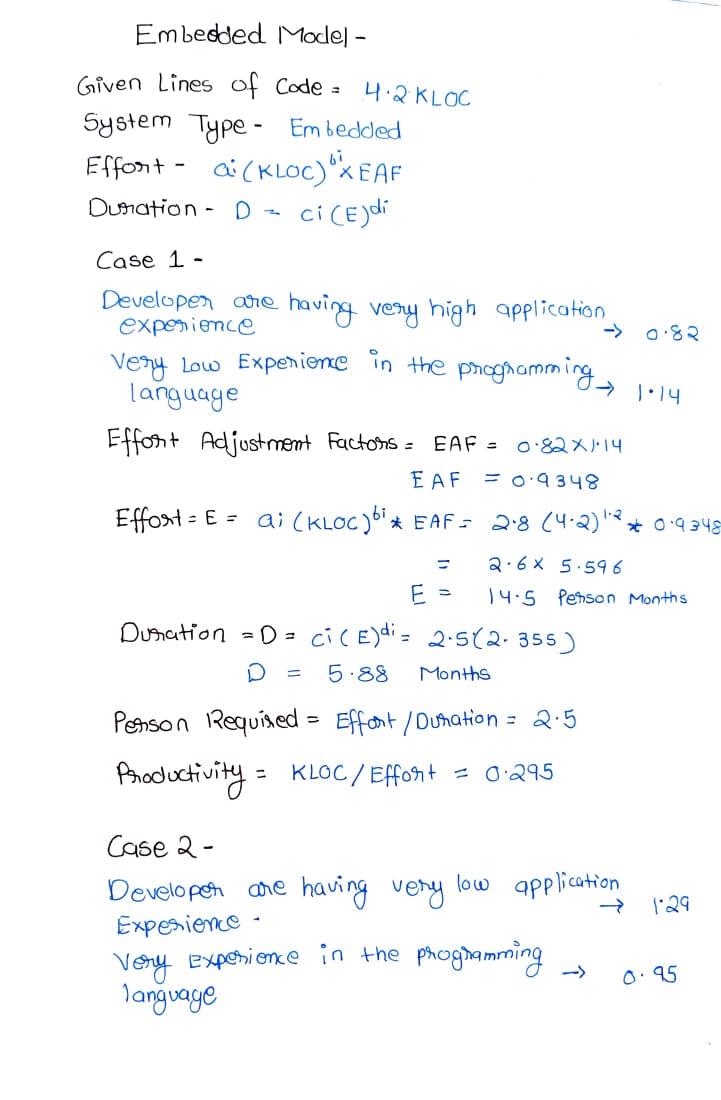 Embedded Model -
Given Lines of Code = 4.2 KLOC
System Type - Embedded
Effort - ai (KLOC)^bi x EAF
Duration - D = ci (E)^di
Case 1 -
Developer are having very high application
experience → 0.82
Very Low Experience in the programming
language → 1.14
Effort Adjustment Factors = EAF = 0.82 x 1.14
EAF = 0.9348
Effort = E = ai (KLOC)^bi * EAF = 2.8 (4.2)^1.2 * 0.9348
= 2.6 x 5.596
E = 14.5 Person Months
Duration = D = ci (E)^di = 2.5 (2.355)
D = 5.88 Months
Person Required = Effort / Duration = 2.5
Productivity = KLOC / Effort = 0.295
Case 2 -
Developer are having very low application
Experience - → 1.29
Very Experience in the programming
language → 0.95